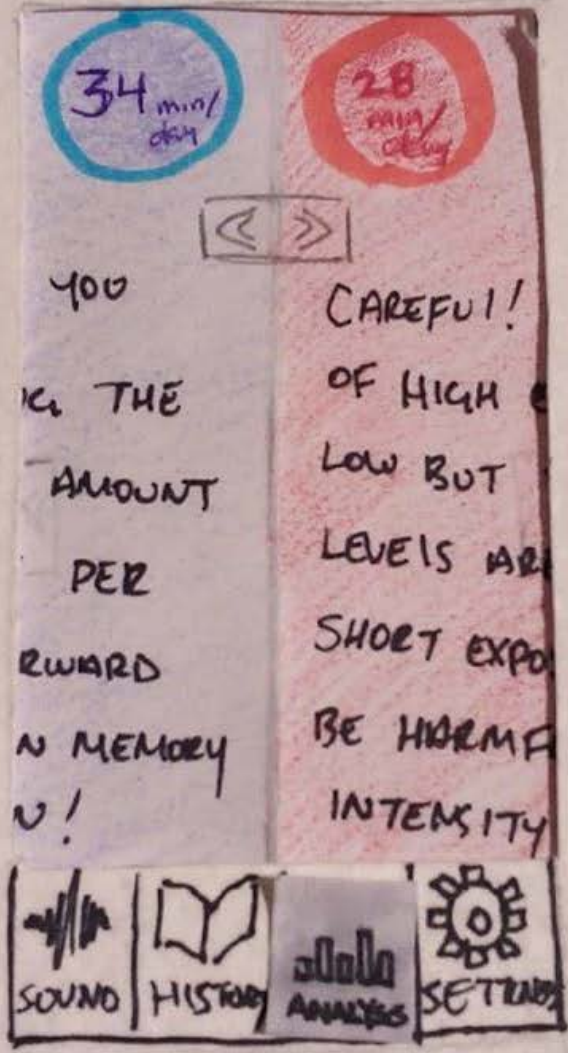 34 min/
day
28
min/
day
YOU
G THE
AMOUNT
PER
RWARD
N MEMORY
N!
CAREFUl!
OF HIGH
LOW BUT
LEVElS AR
SHORT EXPO
BE HARMF
INTENSITY
SOUND
HISTORY
ANALYSIS
SETTINGS